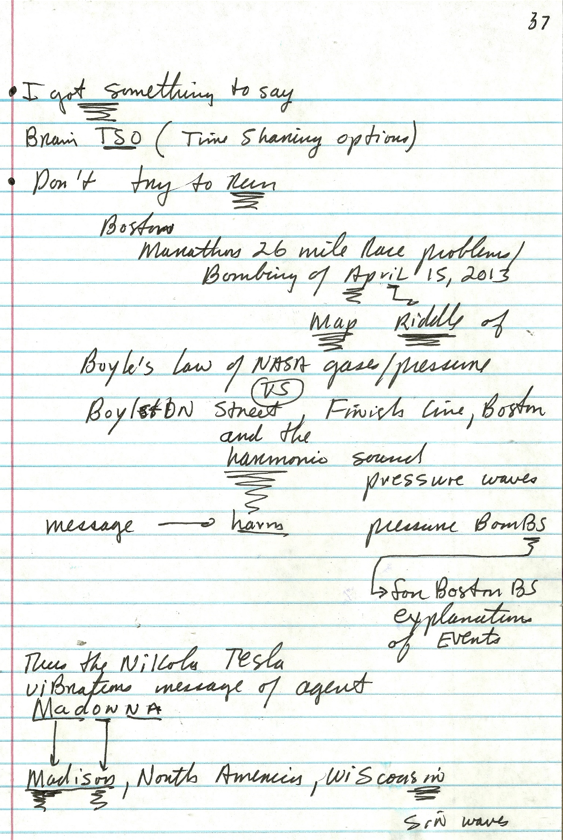 37
• I got something to say
Brain TSO ( Time Sharing options)
• Don't try to Run
Boston
Marathon 26 mile Race problems/
Bombing of April 15, 2013
Map Riddle of
Boyle's Law of NASA gases/pressure
VS
BoylstON Street, Finish Line, Boston
and the
harmonic sound
pressure waves
message → harm pressure BomBS
→ for Boston BS
explanations
of Events
Thus the Nikola Tesla
viBrations message of agent
MadoNNA
Madison, North America, WiSconsin
Sin waves